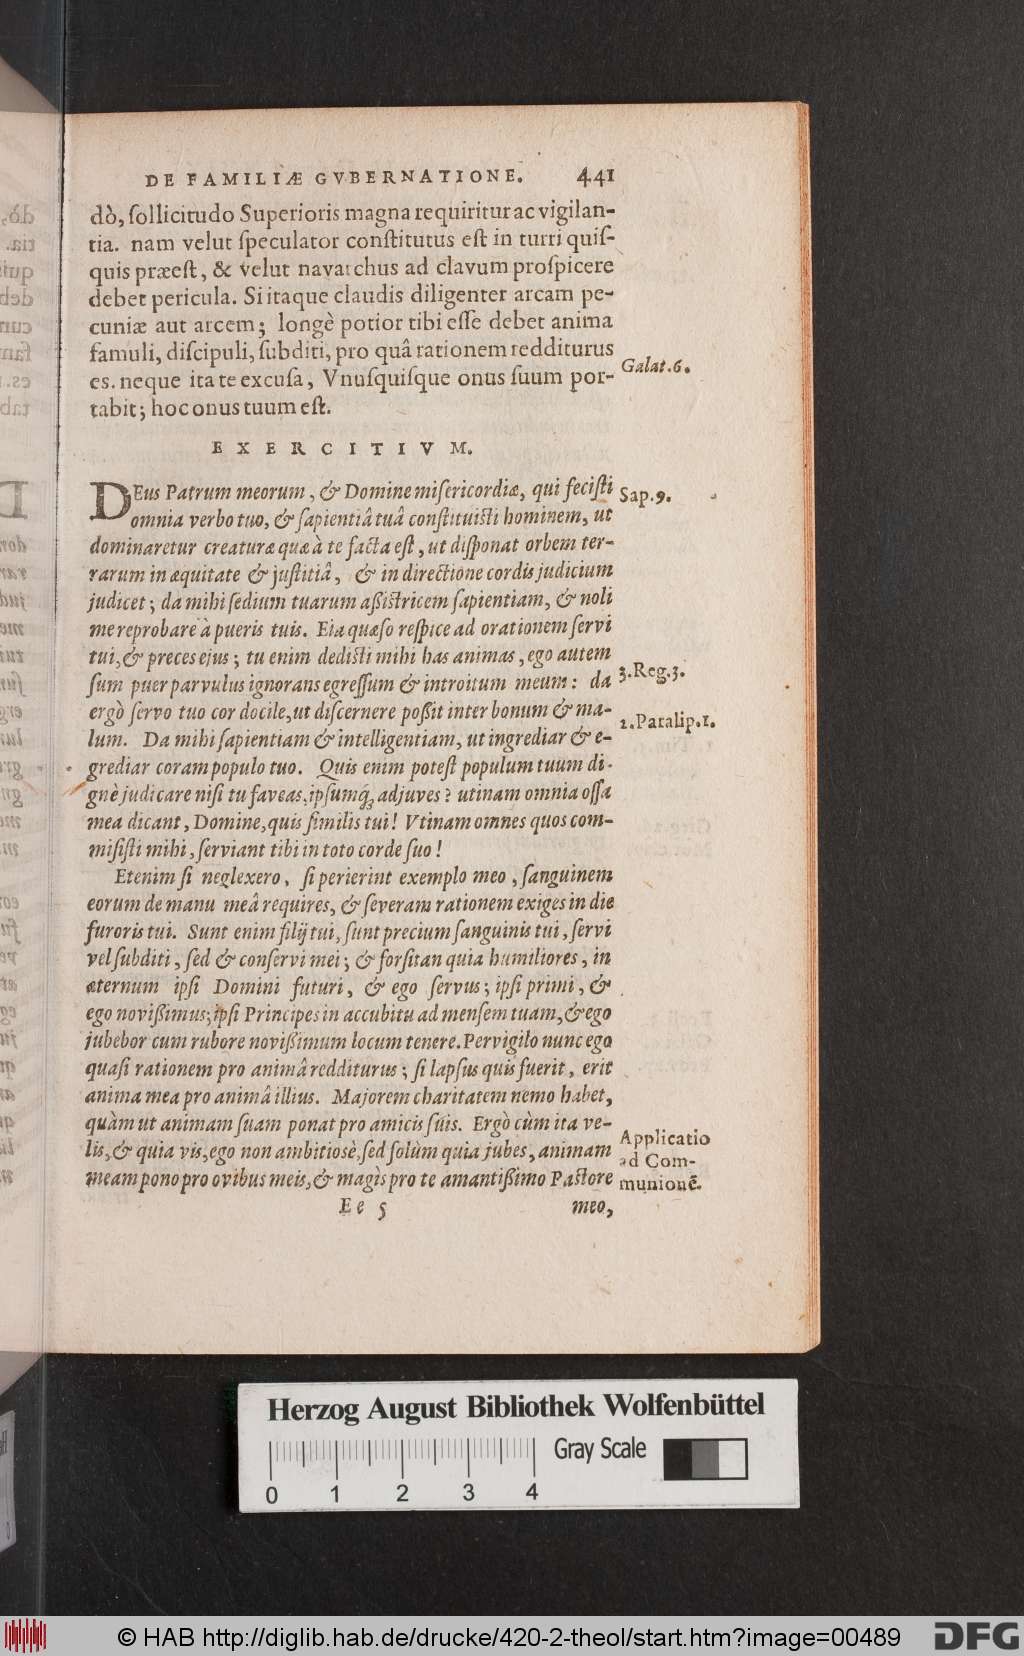 DE FAMILIÆ GVBERNATIONE. 441
dò, ſollicitudo Superioris magna requiritur ac vigilan-
tia. nam velut ſpeculator conſtitutus eſt in turri quiſ-
quis præeſt, & velut navarchus ad clavum proſpicere
debet pericula. Si itaque claudis diligenter arcam pe-
cuniæ aut arcem; longè potior tibi eſſe debet anima
famuli, diſcipuli, ſubditi, pro quâ rationem redditurus
es. neque ita te excuſa, Vnuſquiſque onus ſuum por-
tabit; hoc onus tuum eſt.
Galat.6.
EXERCITIVM.
DEus Patrum meorum, & Domine miſericordiæ, qui feciſti
omnia verbo tuo, & ſapientiâ tuâ conſtituiſti hominem, ut
dominaretur creaturæ quæ à te facta eſt, ut diſponat orbem ter-
rarum in æquitate & juſtitiâ, & in directione cordis judicium
judicet; da mihi ſedium tuarum aßiſtricem ſapientiam, & noli
me reprobare à pueris tuis. Eia quæſo reſpice ad orationem ſervi
tui, & preces ejus; tu enim dediſti mihi has animas, ego autem
ſum puer parvulus ignorans egreſſum & introitum meum: da
ergò ſervo tuo cor docile, ut diſcernere poßit inter bonum & ma-
lum. Da mihi ſapientiam & intelligentiam, ut ingrediar & e-
grediar coram populo tuo. Quis enim poteſt populum tuum di-
gnè judicare niſi tu faveas, ipſumq́; adjuves? utinam omnia oſſa
mea dicant, Domine, quis ſimilis tui! Vtinam omnes quos com-
miſiſti mihi, ſerviant tibi in toto corde ſuo!
Sap.9.
3.Reg.3.
2.Paralip.1.
Etenim ſi neglexero, ſi perierint exemplo meo, ſanguinem
eorum de manu meâ requires, & ſeveram rationem exiges in die
furoris tui. Sunt enim filij tui, ſunt precium ſanguinis tui, ſervi
vel ſubditi, ſed & conſervi mei; & forſitan quia humiliores, in
æternum ipſi Domini futuri, & ego ſervus; ipſi primi, &
ego novißimus; ipſi Principes in accubitu ad menſem tuam, & ego
jubebor cum rubore novißimum locum tenere. Pervigilo nunc ego
quaſi rationem pro animâ redditurus; ſi lapſus quis fuerit, erit
anima mea pro animâ illius. Majorem charitatem nemo habet,
quàm ut animam ſuam ponat pro amicis ſuis. Ergò cùm ita ve-
lis, & quia vis, ego non ambitiosè, ſed ſolùm quia jubes, animam
meam pono pro ovibus meis, & magis pro te amantißimo Paſtore
Applicatio
ad Com-
munionē.
Ee 5 meo,
Herzog August Bibliothek Wolfenbüttel
Gray Scale
0 1 2 3 4
© HAB http://diglib.hab.de/drucke/420-2-theol/start.htm?image=00489
DFG